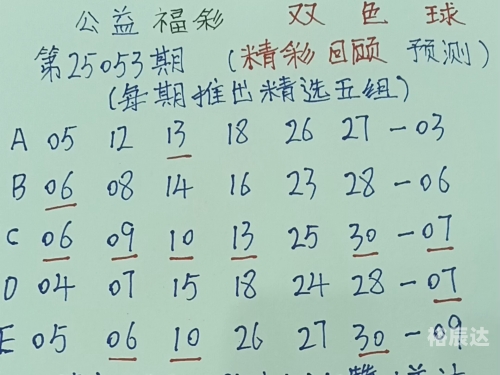 公益福彩 双色球
第25053期 (精彩回顾 预测)
(每期推出精选五组)
A 05 12 13 18 26 27-03
B 06 08 14 16 23 28-06
C 06 09 10 13 25 30-07
D 04 07 15 18 24 28-07
E 05 06 10 26 27 30-09